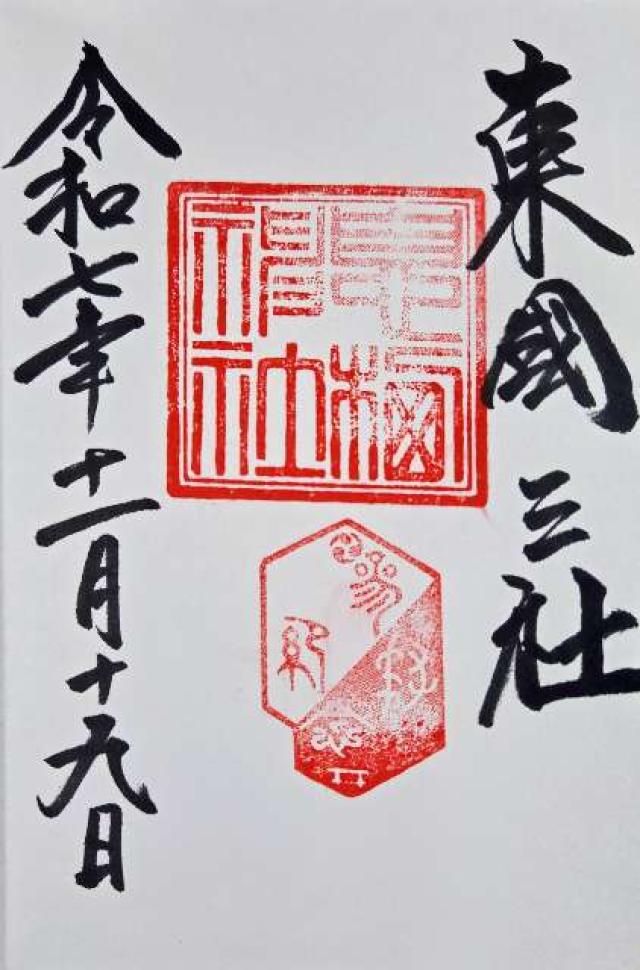 東國三社
息栖
神社
令和七年十一月十九日